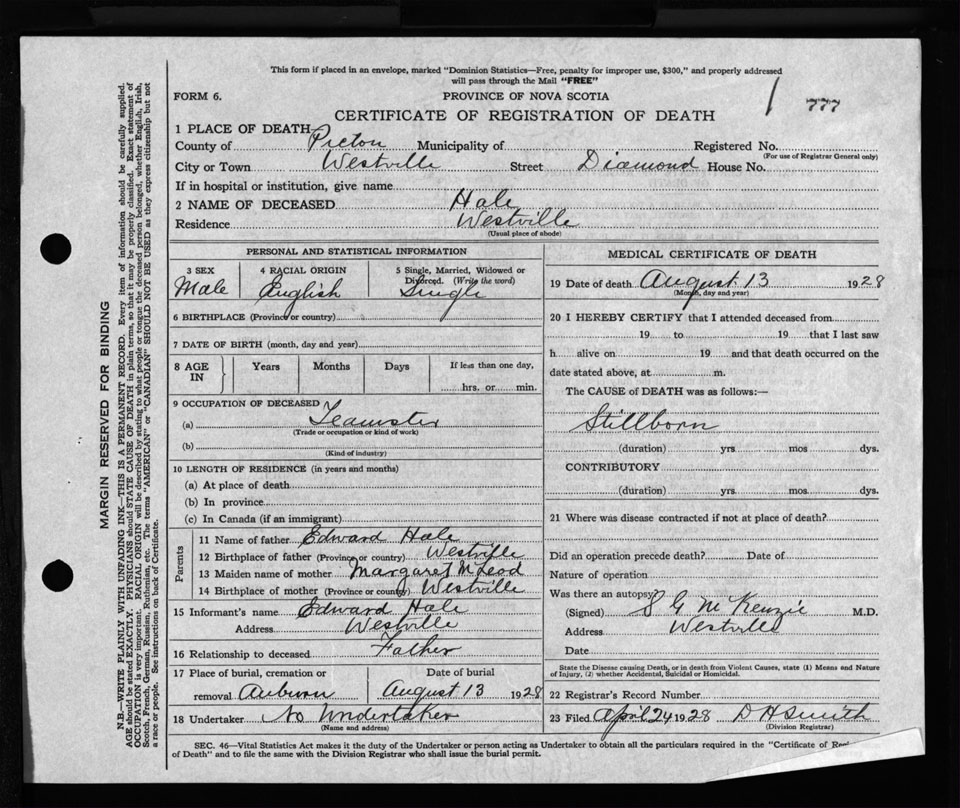 This form if placed in an envelope, marked "Dominion Statistics—Free, penalty for improper use, $300," and properly addressed
will pass through the Mail "FREE"
FORM 6.
PROVINCE OF NOVA SCOTIA
777
CERTIFICATE OF REGISTRATION OF DEATH
1 PLACE OF DEATH
County of Pictou Municipality of Registered No.
(For use of Registrar General only)
City or Town Westville Street Diamond House No.
If in hospital or institution, give name
2 NAME OF DECEASED Hale
Residence Westville
(Usual place of abode)
PERSONAL AND STATISTICAL INFORMATION
3 SEX 4 RACIAL ORIGIN 5 Single, Married, Widowed or
Divorced. (Write the word)
Male English Single
6 BIRTHPLACE (Province or country)
7 DATE OF BIRTH (month, day and year)
8 AGE IN Years Months Days If less than one day,
hrs. or min.
9 OCCUPATION OF DECEASED
(a) Teamster
(Trade or occupation or kind of work)
(b)
(Kind of industry)
10 LENGTH OF RESIDENCE (in years and months)
(a) At place of death
(b) In province
(c) In Canada (if an immigrant)
Parents
11 Name of father Edward Hale
12 Birthplace of father (Province or country) Westville
13 Maiden name of mother Margaret McLeod
14 Birthplace of mother (Province or country) Westville
15 Informant's name Edward Hale
Address Westville
16 Relationship to deceased Father
17 Place of burial, cremation or Date of burial
removal Auburn August 13 1928
18 Undertaker No Undertaker
(Name and address)
MEDICAL CERTIFICATE OF DEATH
19 Date of death August 13 1928
(Month, day and year)
20 I HEREBY CERTIFY that I attended deceased from
19 to 19 that I last saw
h alive on 19 and that death occurred on the
date stated above, at m.
The CAUSE of DEATH was as follows:—
Stillborn
(duration) yrs mos dys.
CONTRIBUTORY
(duration) yrs. mos dys.
21 Where was disease contracted if not at place of death?
Did an operation precede death? Date of
Nature of operation
Was there an autopsy?
(Signed) S G McKenzie M.D.
Address Westville
Date
State the Disease causing Death, or in death from Violent Causes, state (1) Means and Nature
of Injury, (2) whether Accidental, Suicidal or Homicidal.
22 Registrar's Record Number
23 Filed April 24 1928 D H Smith
(Division Registrar)
SEC. 46—Vital Statistics Act makes it the duty of the Undertaker or person acting as Undertaker to obtain all the particulars required in the "Certificate of
of Death" and to file the same with the Division Registrar who shall issue the burial permit.
MARGIN RESERVED FOR BINDING
N.B.—WRITE PLAINLY WITH UNFADING INK—THIS IS A PERMANENT RECORD. Every item of information should be carefully supplied.
AGE should be stated EXACTLY. PHYSICIANS should STATE CAUSE OF DEATH in plain terms, so that it may be properly classified. Exact statement of
OCCUPATION is very important. RACIAL ORIGIN will be described by stating to what people or tongue the deceased person belonged, whether English, Irish,
Scotch, French, German, Russian, Ruthenian, etc. The terms "AMERICAN" or "CANADIAN" SHOULD NOT BE USED as they express citizenship but not
a race or people. See instructions on back of Certificate.